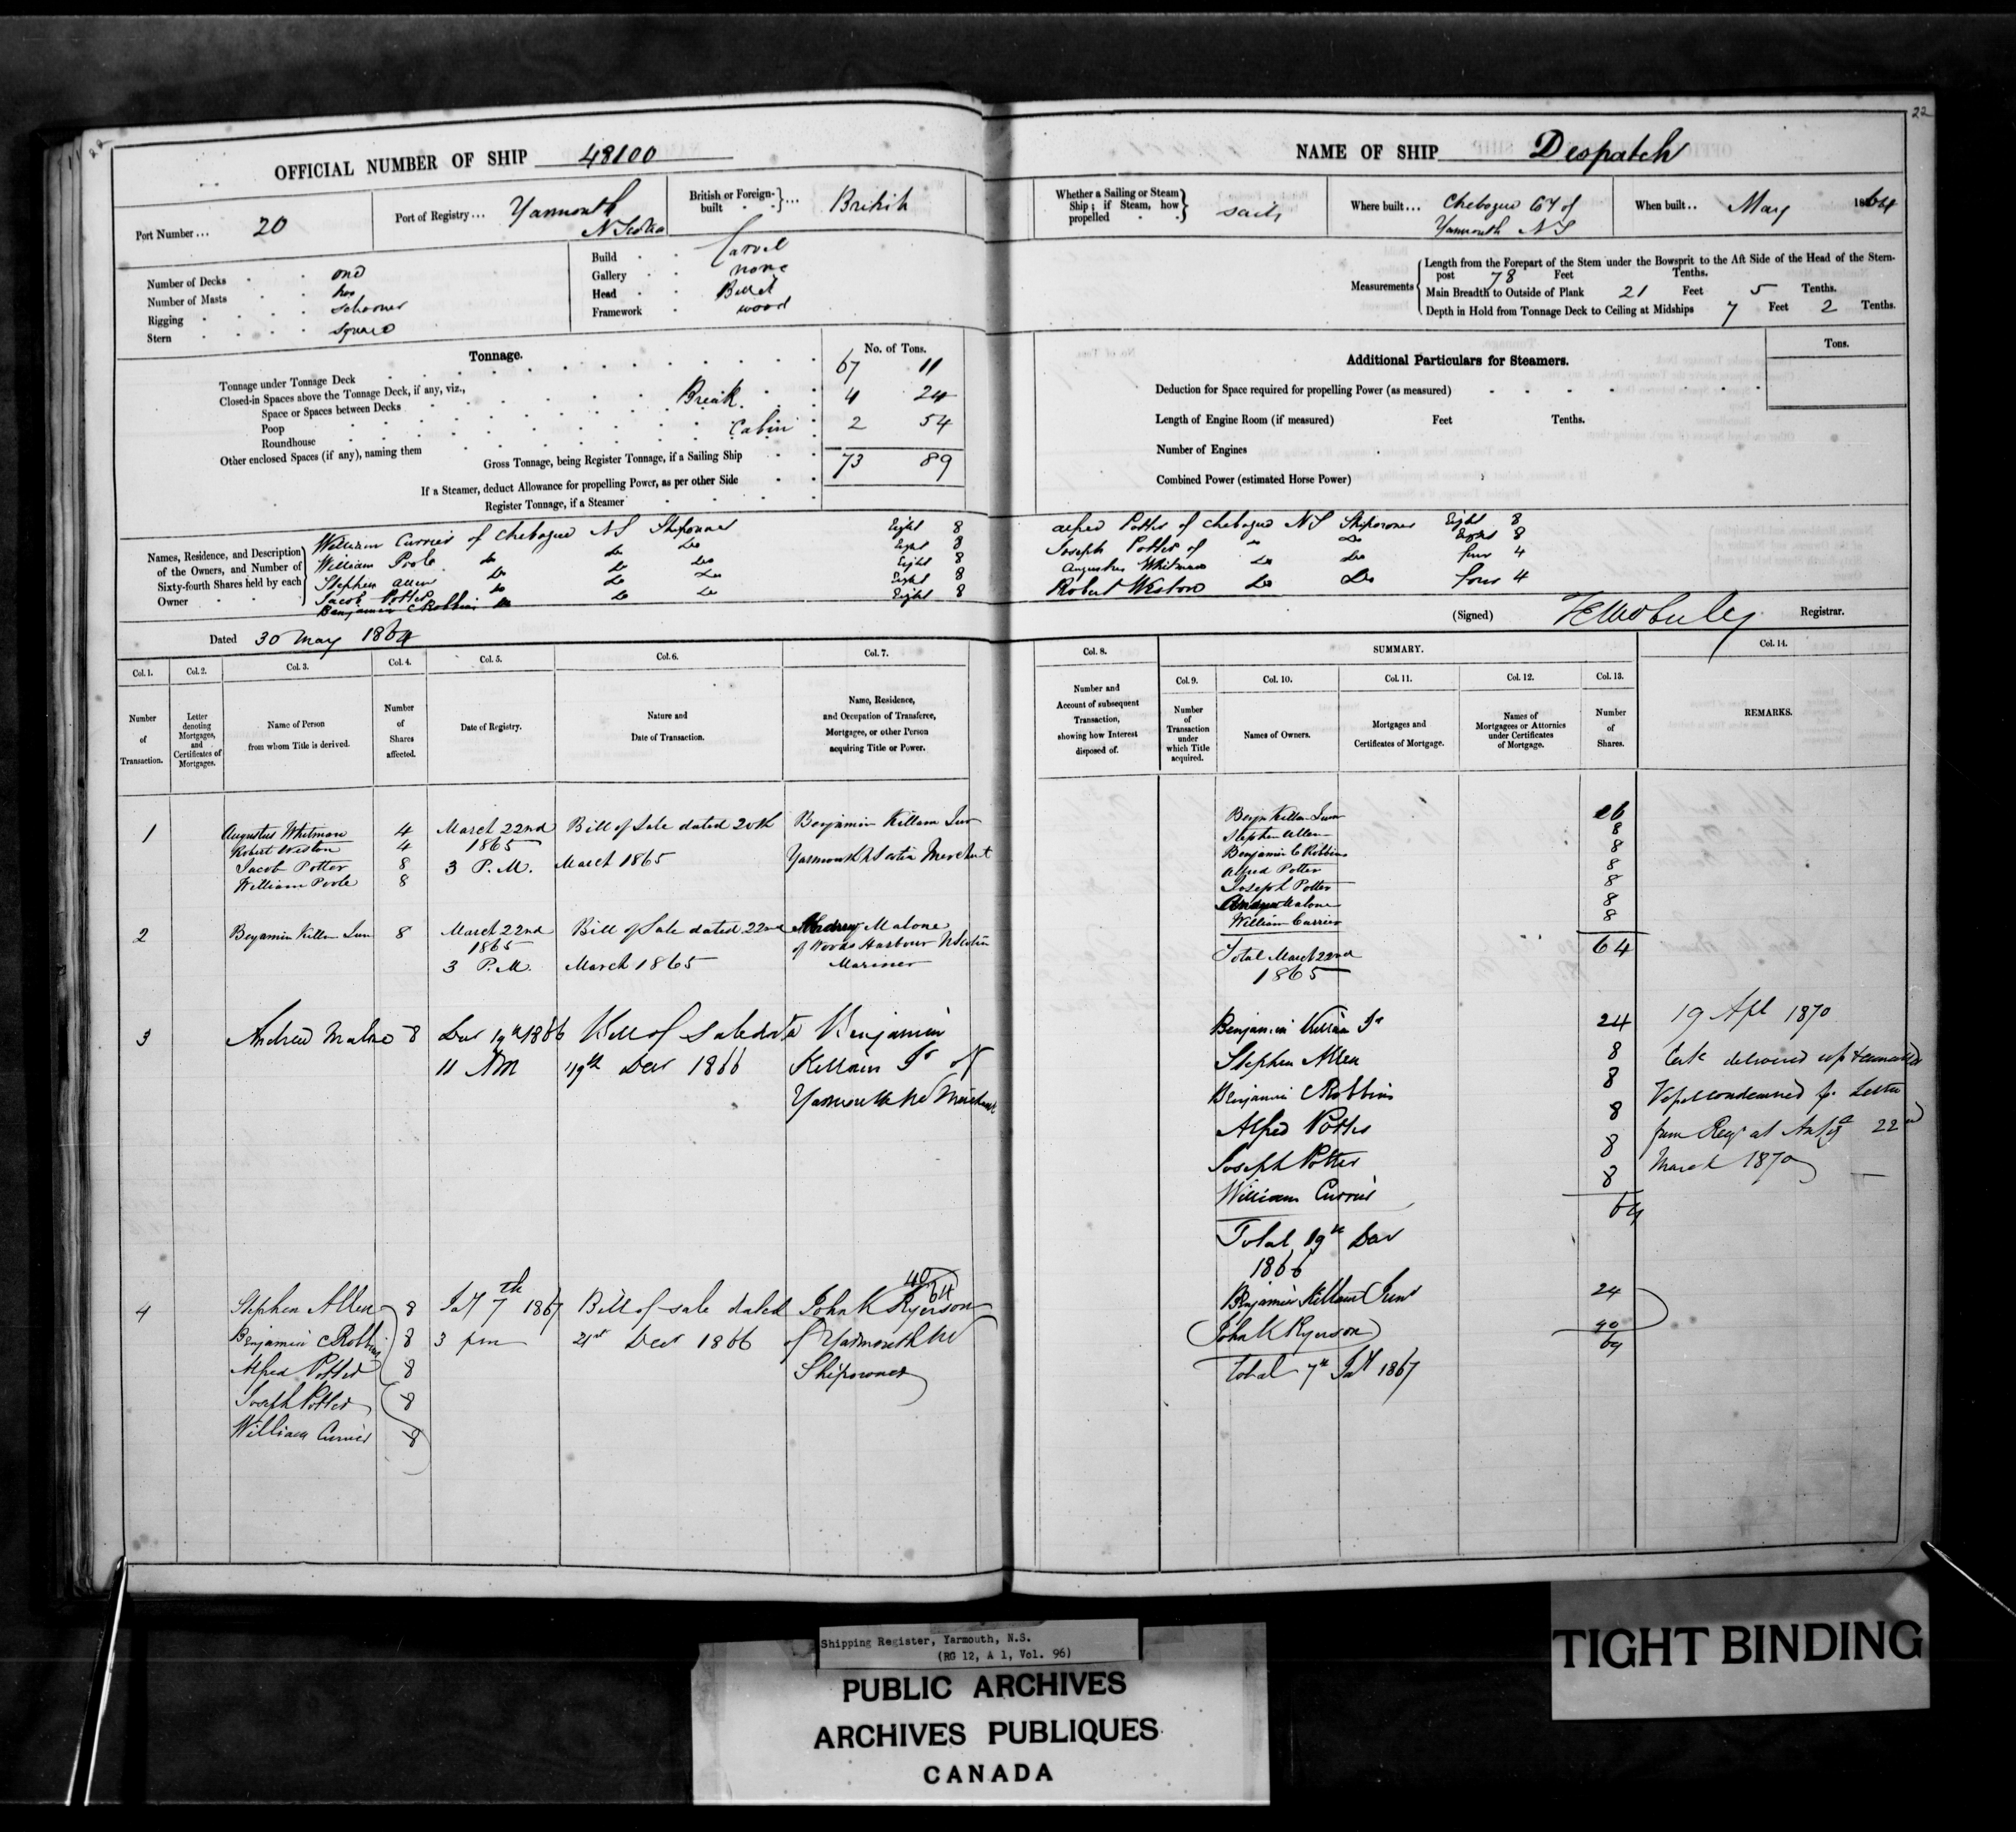 22
22
OFFICIAL NUMBER OF SHIP 48100
NAME OF SHIP Despatch
Port Number ... 20
Port of Registry ... Yarmouth
N Scotia
British or Foreign-
built } ... British
Whether a Sailing or Steam
Ship; if Steam, how
propelled } Sails
Where built ... Chebogue Cty of
Yarmouth NS
When built .. May 1864
Number of Decks one
Number of Masts two
Rigging schooner
Stern square
Build Carvel
Gallery none
Head Billet
Framework wood
Measurements { Length from the Forepart of the Stem under the Bowsprit to the Aft Side of the Head of the Stern-
post 78 Feet Tenths.
Main Breadth to Outside of Plank 21 Feet 5 Tenths.
Depth in Hold from Tonnage Deck to Ceiling at Midships 7 Feet 2 Tenths.
Tonnage.
No. of Tons.
Tonnage under Tonnage Deck 67 11
Closed-in Spaces above the Tonnage Deck, if any, viz.,
Space or Spaces between Decks Break 4 24
Poop
Roundhouse Cabin 2 54
Other enclosed Spaces (if any), naming them
Gross Tonnage, being Register Tonnage, if a Sailing Ship 73 89
If a Steamer, deduct Allowance for propelling Power, as per other Side
Register Tonnage, if a Steamer
Additional Particulars for Steamers.
Tons.
Deduction for Space required for propelling Power (as measured)
Length of Engine Room (if measured) Feet Tenths.
Number of Engines
Combined Power (estimated Horse Power)
Names, Residence, and Description
of the Owners, and Number of
Sixty-fourth Shares held by each
Owner
William Currier of Chebogue NS Shipowner Eight 8
William Poole Do Do Do Eight 8
Stephen Allen Do Do Do Eight 8
Jacob Potter Do Do Do Eight 8
Benjamin C Robbins Do Do Do Eight 8
Alfred Potter of Chebogue NS Shipowner Eight 8
Joseph Potter of " Do Eight 8
Augustus Whitman Do Do four 4
Robert Weston Do Do four 4
Dated 30 May 1864
(Signed) Registrar.
Col. 1. Col. 2. Col. 3. Col. 4. Col. 5. Col. 6. Col. 7.
Number
of
Transaction.
Letter
denoting
Mortgages,
and
Certificates of
Mortgages.
Name of Person
from whom Title is derived.
Number
of
Shares
affected.
Date of Registry.
Nature and
Date of Transaction.
Name, Residence,
and Occupation of Transferee,
Mortgagee, or other Person
acquiring Title or Power.
Col. 8.
SUMMARY.
Col. 14.
Col. 9. Col. 10. Col. 11. Col. 12. Col. 13.
Number and
Account of subsequent
Transaction,
showing how Interest
disposed of.
Number
of
Transaction
under
which Title
acquired.
Names of Owners.
Mortgages and
Certificates of Mortgage.
Names of
Mortgagees or Attornies
under Certificates
of Mortgage.
Number
of
Shares.
REMARKS.
1
Augustus Whitman 4
Robert Weston 4
Jacob Potter 8
William Poole 8
March 22nd
1865
3 P.M.
Bill of Sale dated 20th
March 1865
Benjamin Killam Jun
Yarmouth N Scotia Merchant
2
Benjamin Killam Jun 8
March 22nd
1865
3 P.M.
Bill of Sale dated 22nd
March 1865
Andrew Malone
of Woods Harbour N Scotia
Mariner
Benjn Killam Jun 16
Stephen Allen 8
Benjamin C Robbins 8
Alfred Potter 8
Joseph Potter 8
Andrew Malone 8
William Currier 8
Total March 22nd 64
1865
3
Andrew Malone 8
Decr 19th 1866
11 AM
Bill of Sale date
19th Decr 1866
Benjamin
Killam Jr of
Yarmouth NS Merchant
Benjamin Killam Jr 24
Stephen Allen 8
Benjamin C Robbins 8
Alfred Potter 8
Joseph Potter 8
William Currier 8
64
Total 19th Decr
1866
19 Apl 1870
Certe delivered up & cancelled
Vessel condemned pr Letter
from Regr at Antiga 22nd
March 1870
4
Stephen Allen 8
Benjamin C Robbins 8
Alfred Potter 8
Joseph Potter 8
William Currier 8
Jany 7th 1867
3 pm
Bill of sale dated
21st Decr 1866
40
64
John K Ryerson
of Yarmouth NS
Shipowner
Benjamin Killam Junr 24
John K Ryerson 40
64
Total 7th Jany 1867
Shipping Register, Yarmouth, N.S.
(RG 12, A 1, Vol. 96)
PUBLIC ARCHIVES
ARCHIVES PUBLIQUES
CANADA
TIGHT BINDING